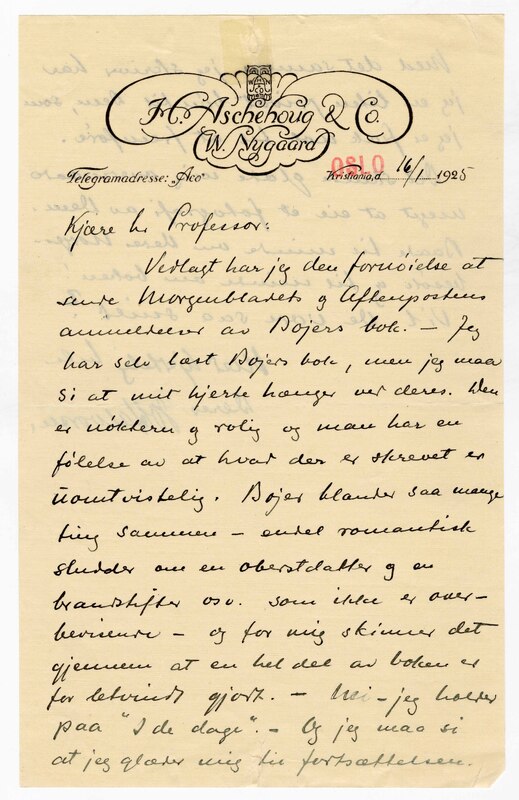 H. Aschehoug & Co.
W. Nygaard
Telegramadresse: „Aco"
0810
Kristiania, d. 16/1 1925
Kjære hr Professor:
Vedlagt har jeg den fornöielse at
sende Morgenbladets og Aftenpostens
anmeldelser av Bojers bok. — Jeg
har selv læst Bojers bok, men jeg maa
si at mit hjerte hænger ved deres. Den
er nöktern og rolig og man har en
fölelse av at hvad der er skrevet er
uomtvistelig. Bojer blander saa mange
ting sammen — endel romantisk
sludder om en oberstdatter og en
brandstifter osv. som ikke er over-
bevisende — og for mig skinner det
gjennem at en hel del av boken er
for letvindt gjort. — Nei — jeg holder
paa "I de dage". — Og jeg maa si
at jeg glæder mig til fortsættelsen.